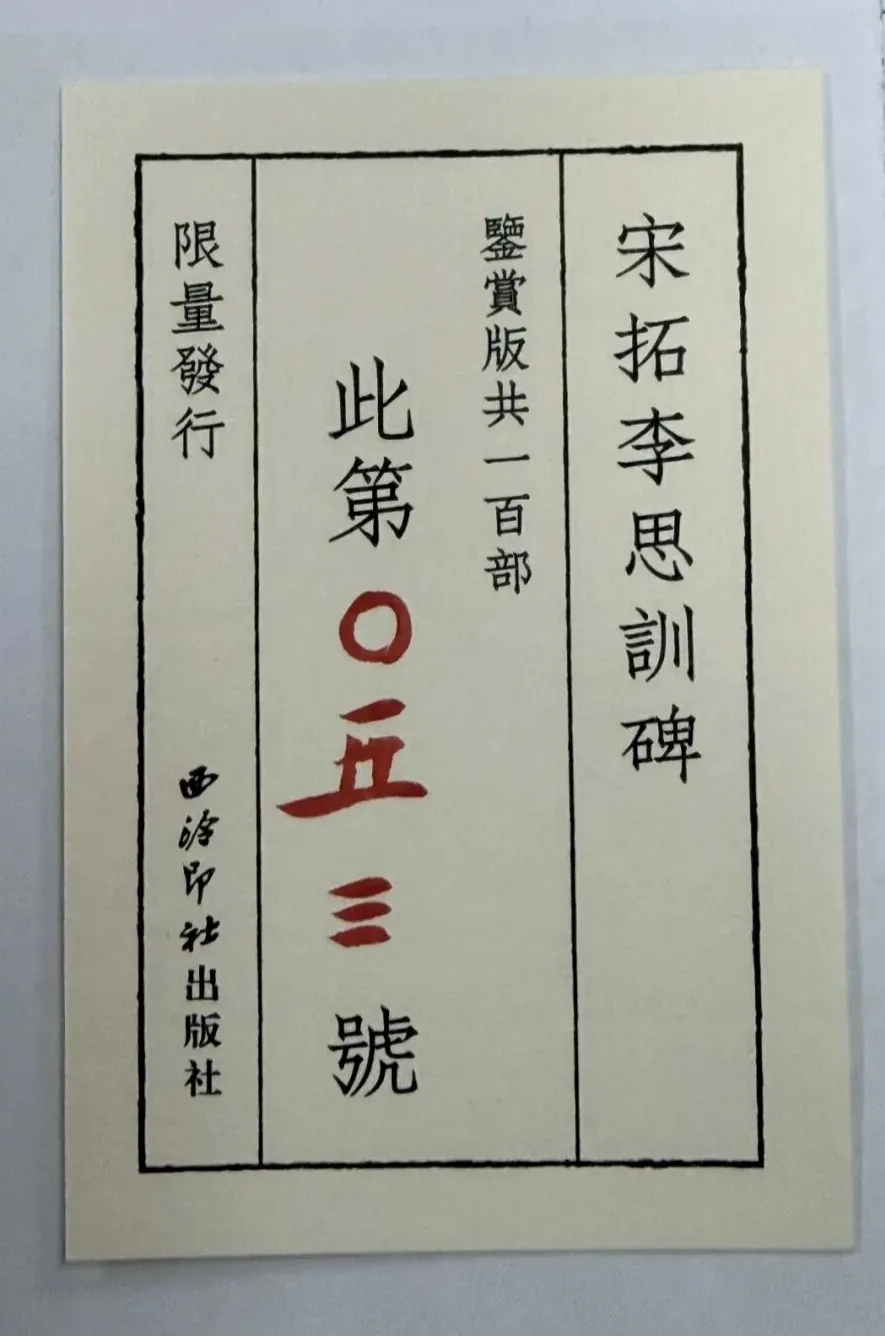 宋拓李思訓碑
鑒賞版共一百部
此第〇五三號
限量發行
西泠印社出版社